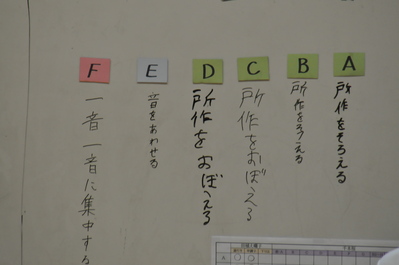 A
所作をそろえる
B
所作をそろえる
C
所作をおぼえる
D
所作をおぼえる
E
音をあわせる
F
一音一音に集中する